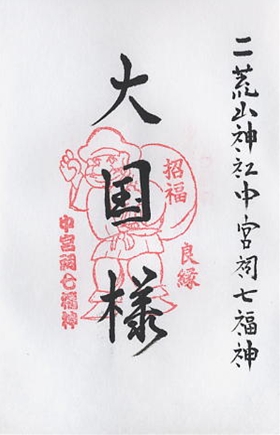 二荒山神社中宮祠七福神
大国様
招福
良縁
中宮祠七福神